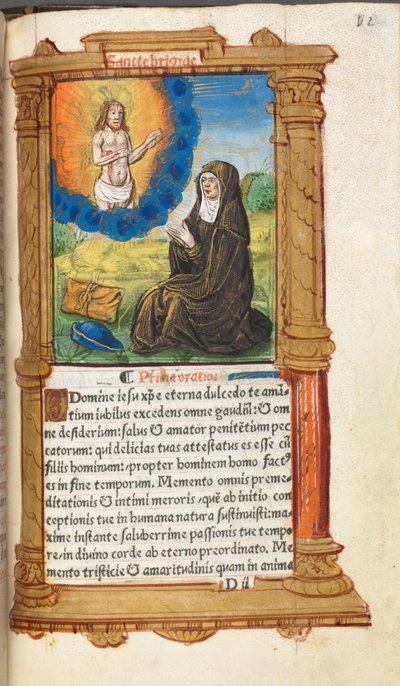 D 2
Sancte brigide
¶ Prima oratio.
O Domine iesu xp̄e eterna dulcedo te amā-
tium iubilus excedens omne gaudiū: & om
ne desiderium: salus & amator penitētium pec
catorum: qui delicias tuas attestatus es esse cū
filiis hominum: propter hominem homo fact9
es in fine temporum. Memento omnis preme-
ditationis & intimi meroris, quē ab initio con
ceptionis tue in humana natura sustinuisti: ma-
xime instante saluberrime passionis tue tempo
re, in diuino corde ab eterno preordinato. Me
mento tristicie & amaritudinis quam in anima
D ii